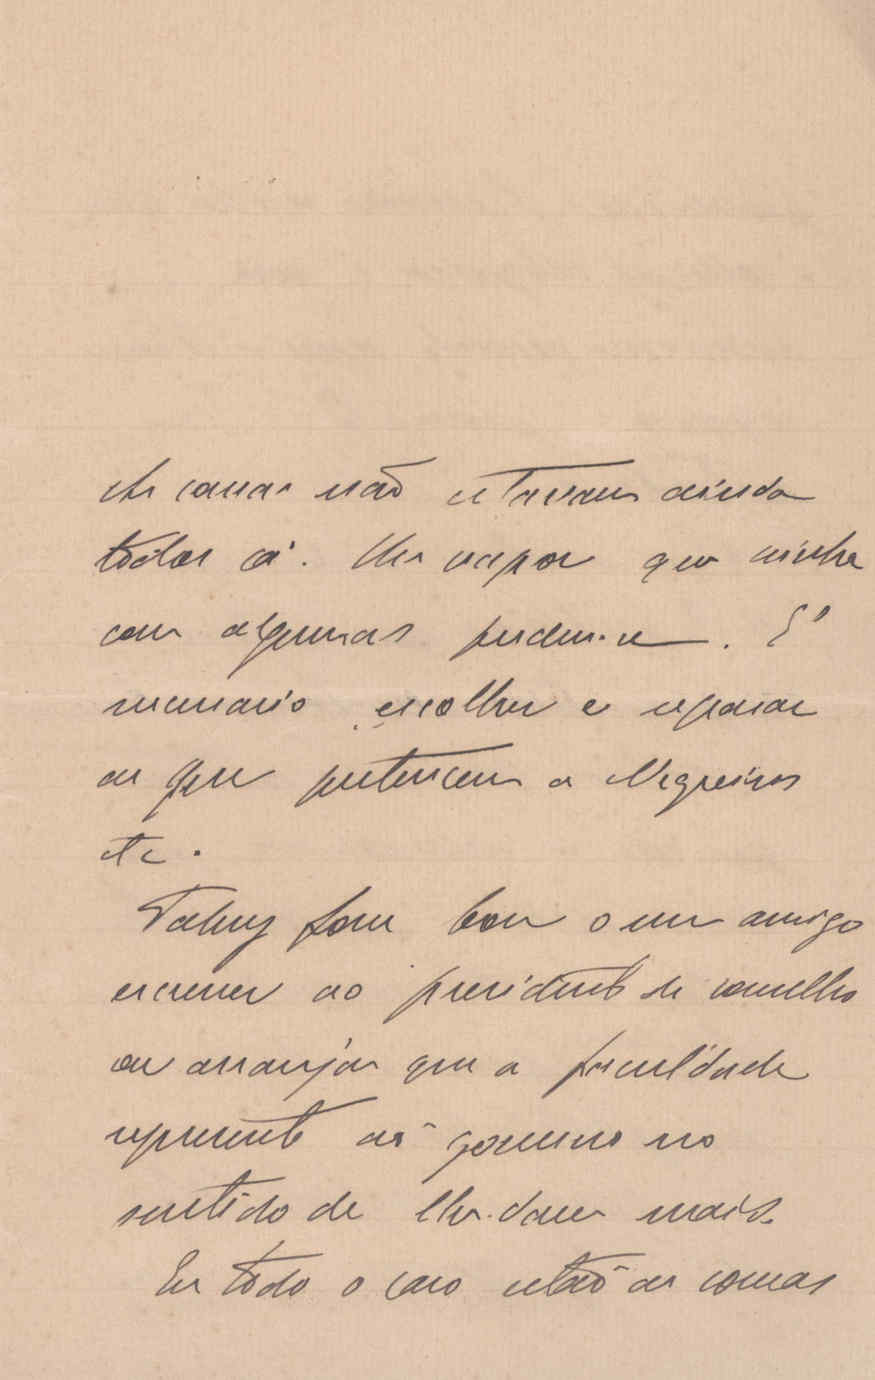 As cousas não estavam ainda
todas cá. Um vapor que vinha
com algumas perdeu-se. É
necessario escolher e separar
as que pertencem a Negreiros
etc.
Talvez fosse bom o meu amigo
escrever ao presidente de conselho
ou arranjar que a faculdade
represente ao governo no
sentido de lhe darem mais.
Em todo o caso estão as cousas